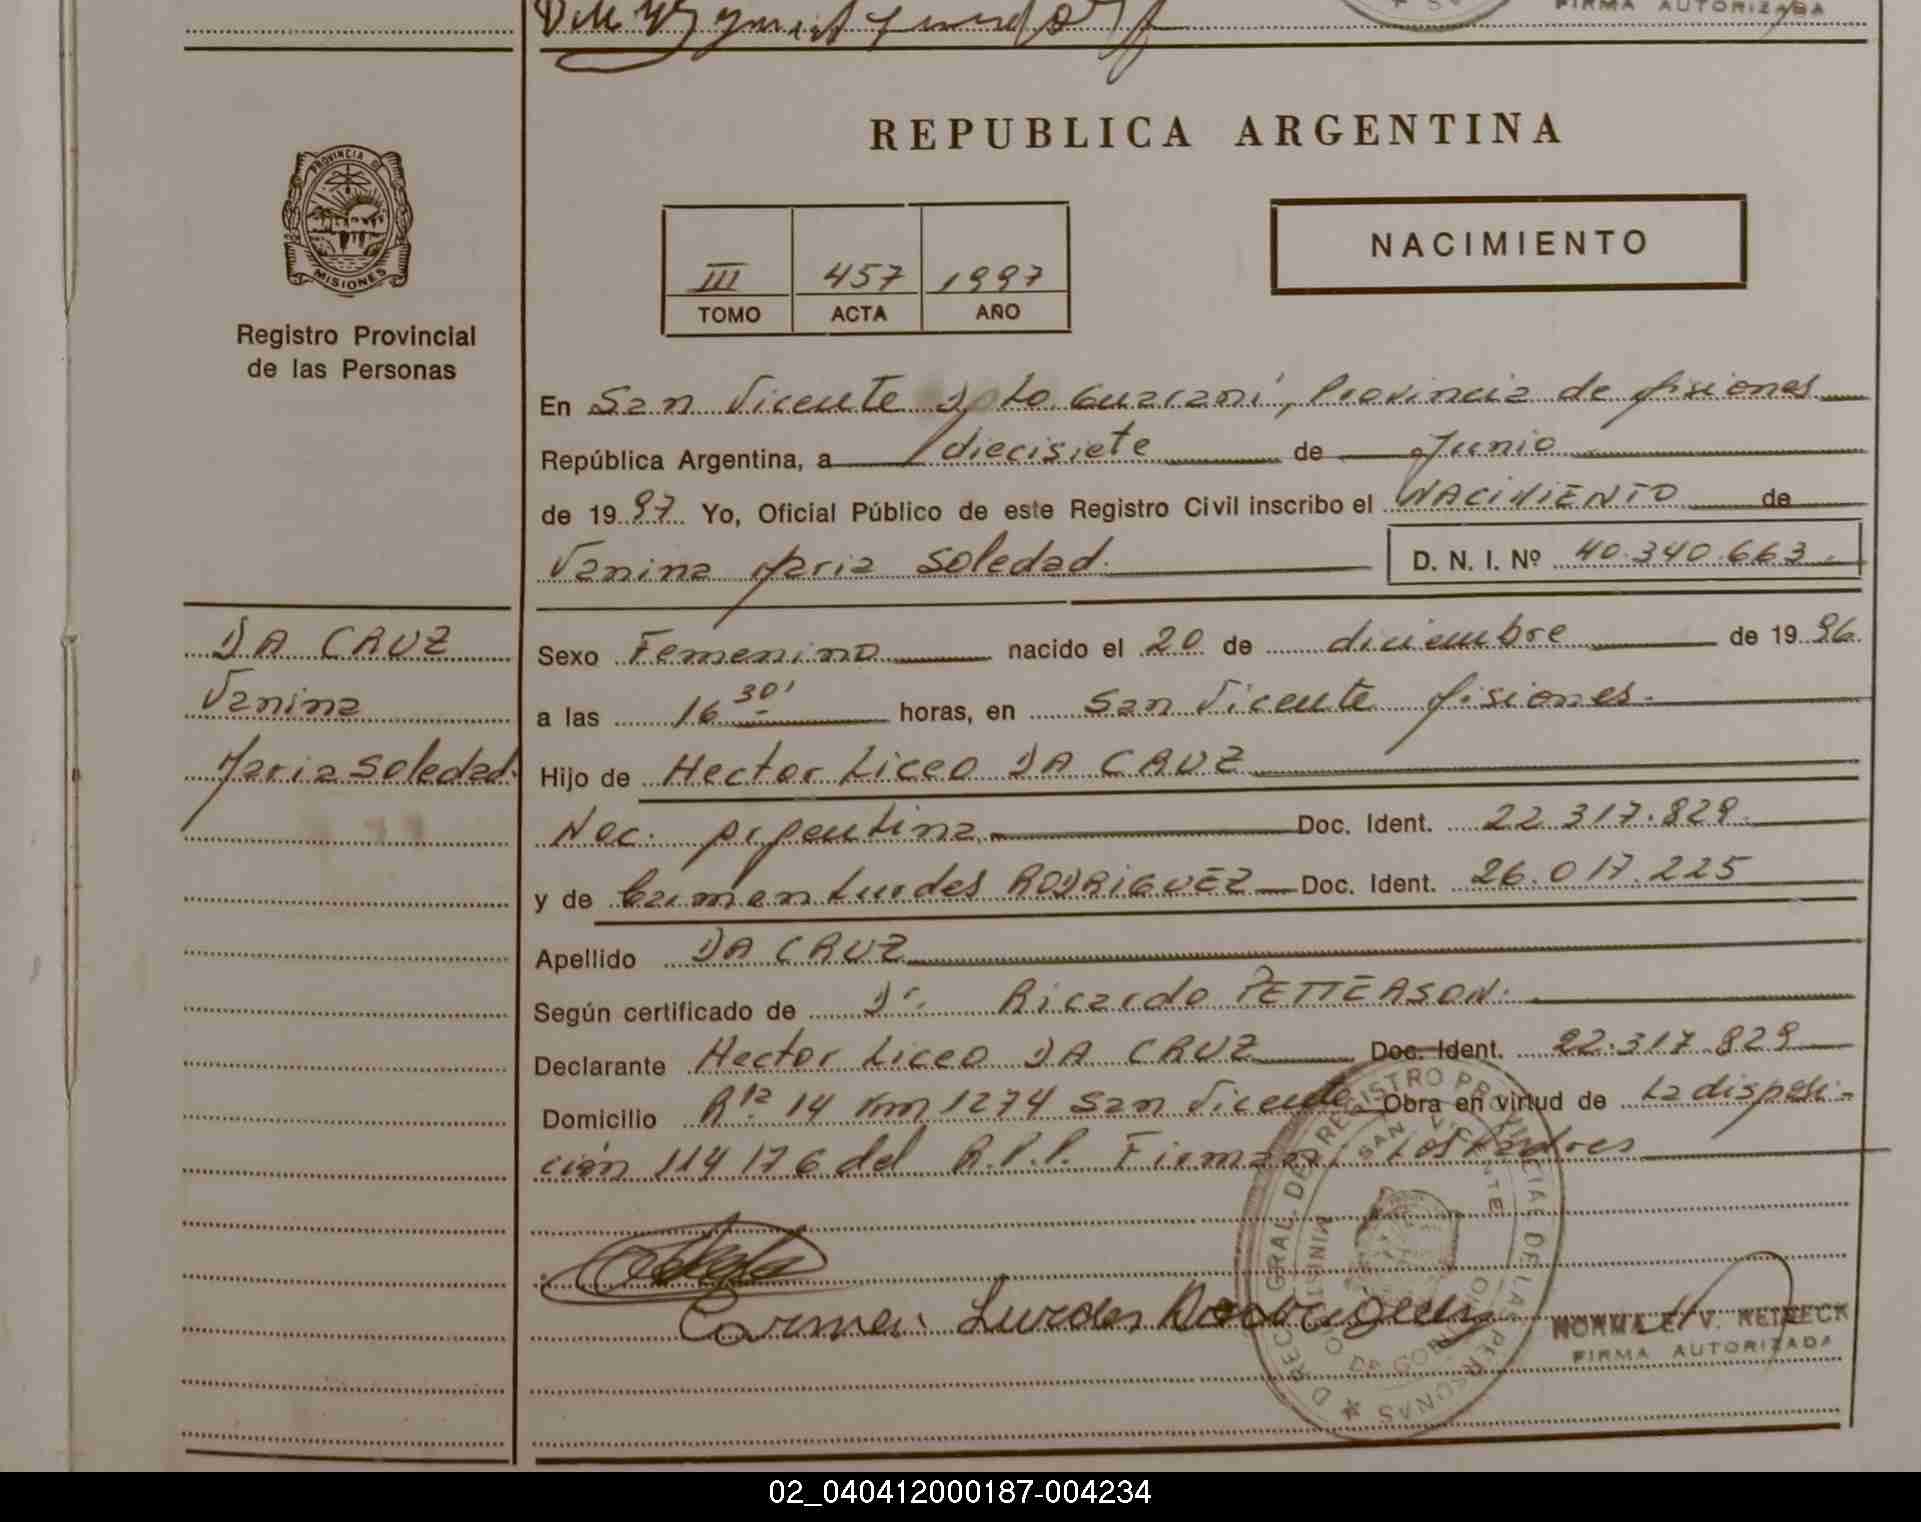 FIRMA AUTORIZADA
REPUBLICA ARGENTINA
PROVINCIA D
MISIONES
Registro Provincial
de las Personas
III 457 1997
TOMO ACTA AÑO
NACIMIENTO
En San Vicente Dpto Guaraní, Provincia de Misiones
República Argentina, a diecisiete de Junio
de 1997 Yo, Oficial Público de este Registro Civil inscribo el NACIMIENTO de
Vanina Maria Soledad. D. N. I. Nº 40.340.663
DA CRUZ
Vanina
Maria Soledad.
Sexo Femenino nacido el 20 de diciembre de 1996.
a las 16 30' horas, en San Vicente Misiones.
Hijo de Hector Liceo DA CRUZ
Nac. Argentina Doc. Ident. 22.317.829.
y de Carmen Lurdes RODRIGUEZ Doc. Ident. 26.017.225
Apellido DA CRUZ
Según certificado de Dr. Ricardo PETTERSON.
Declarante Hector Liceo DA CRUZ Doc. Ident. 22.317.829
Domicilio Rta 14 Km 1274 San Vicente Obra en virtud de La disposi-
ción 114176 del R.P.P. Firman: Los Padres
Carmen Lurdes Rodriguez
NORMA E. V. REINECK
FIRMA AUTORIZADA
DIRECC GRAL. DE REGISTRO PROVINCIAL DE LAS PERSONAS
SAN VICENTE
MINISTERIO DE GOB
02_040412000187-004234